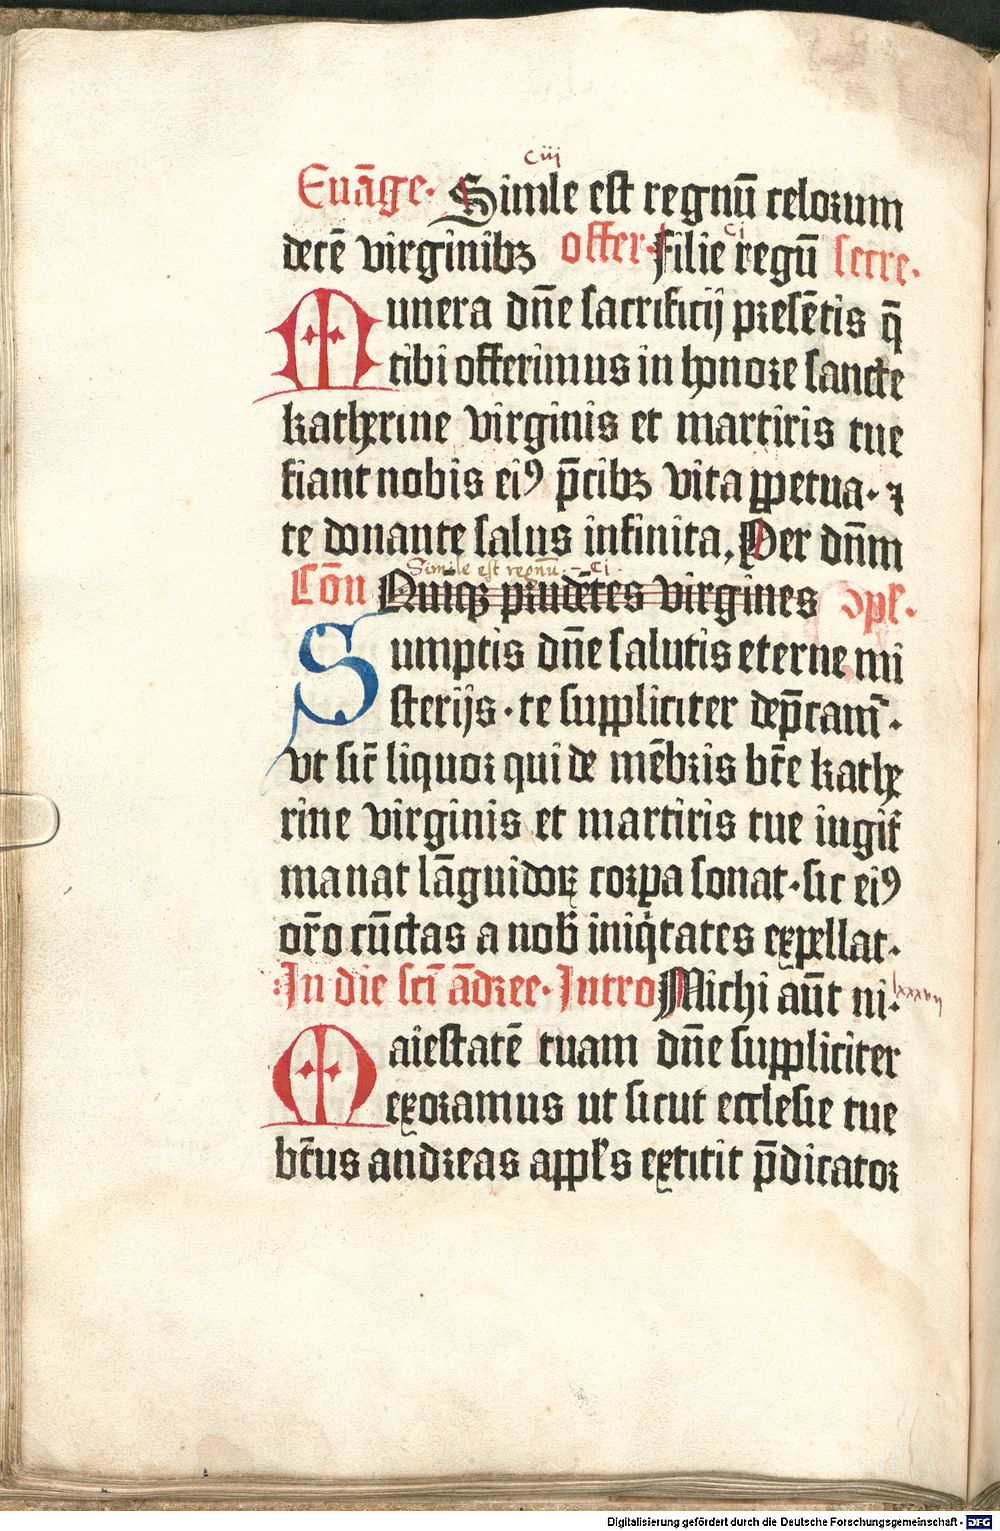 ciij
Euāge. Simile est regnū celorum
ci
decē virginibꝫ offer. filie regū secre.
Munera dn̄e sacrificij presētis q̄
tibi offerimus in honore sancte
katherine virginis et martiris tue
fiant nobis eiꝰ p̄cibꝫ vita ꝑpetua. ⁊
te donante salus infinita. Per dn̄m
Simile est regnū. ci.
Cōn Quiqꝫ prudētes virgines ɔpl.
Sumptis dn̄e salutis eterne mi
sterijs. te suppliciter dep̄cam̄.
Vt sic̄ liquor qui de mēbris bt̄e kathe
rine virginis et martiris tue iugit̄
manat lāguidoꝝ corpa sonat. sic eiꝰ
or̄o cūctas a nob̄ iniqͥtates expellat.
In die sc̄i ādree. Intro Michi aūt ni.
lxxxvij
Maiestatē tuam dn̄e suppliciter
exoramus ut sicut ecclesie tue
bt̄us andreas appl̄s extitit p̄dicator
Digitalisierung gefördert durch die Deutsche Forschungsgemeinschaft - DFG